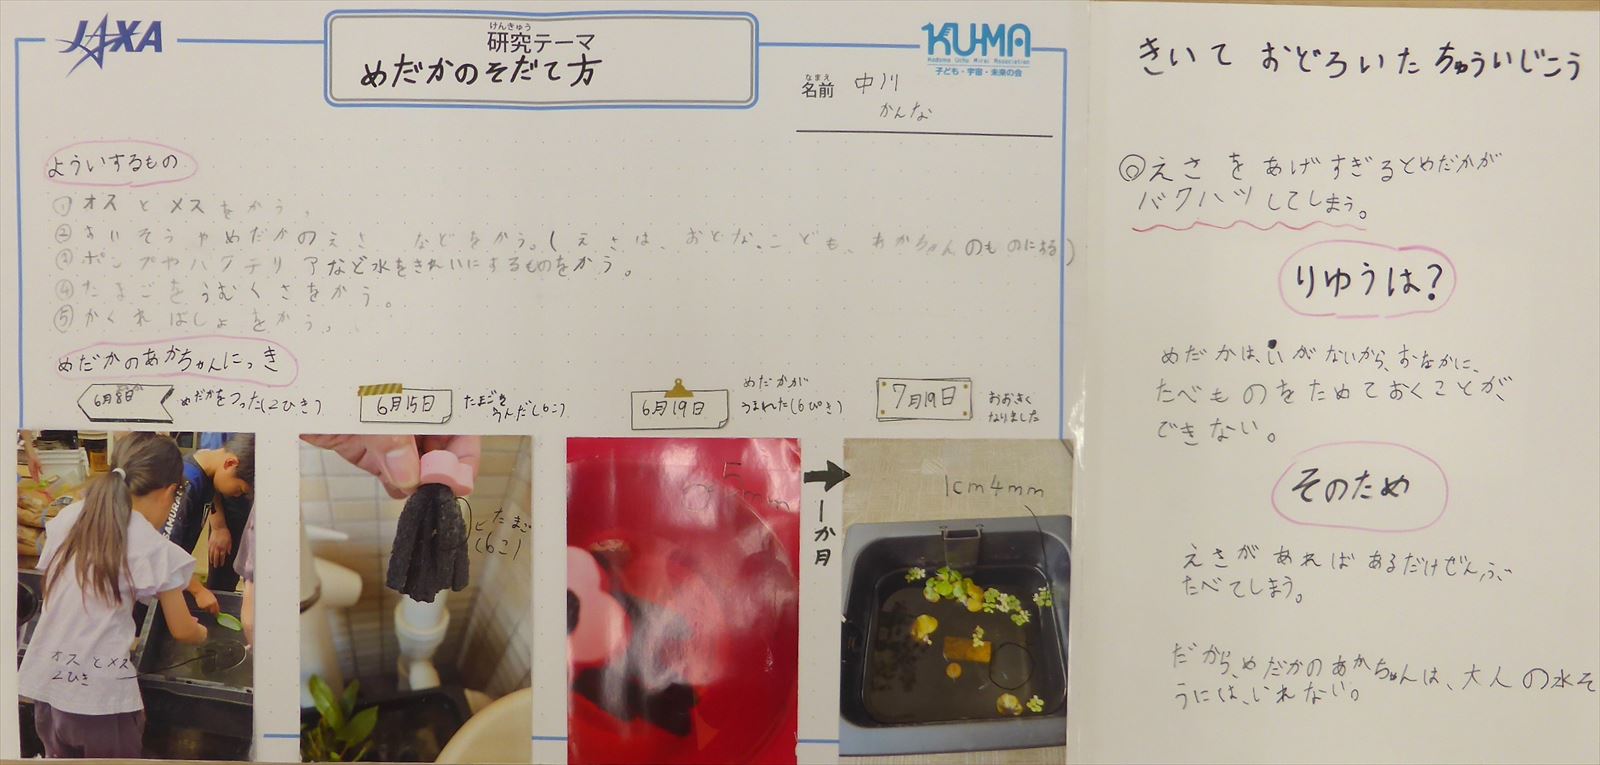 JAXA
けんきゅう
研究テーマ
めだかのそだて方
KU-MA
Kodomo Uchu Mirai Association
子ども・宇宙・未来の会
なまえ
名前 中川
かんな
よういするもの
①オスとメスをかう。
②すいそうやめだかのえさ などをかう。(えさは、おとな、こども、あかちゃんのものにする)
③ポンプやバクテリアなど水をきれいにするものをかう。
④たまごをうむくさをかう。
⑤かくればしょをかう。
めだかのあかちゃんにっき
6月8日
めだかをつった(2ひき)
6月15日
たまごを
うんだ(6こ)
6月19日
めだかが
うまれた(6ぴき)
7月19日
おおきく
なりました
オスとメス
2ひき
たまご
(6こ)
5mm
一か月
1cm4mm
きいておどろいたちゅういじこう
◎えさをあげすぎるとめだかが
バクハツしてしまう。
りゆうは?
めだかは、いがないから、おなかに、
たべものをためておくことが、
できない。
そのため
えさがあればあるだけぜんぶ
たべてしまう。
だから、めだかのあかちゃんは、大人の水そ
うにはいれない。